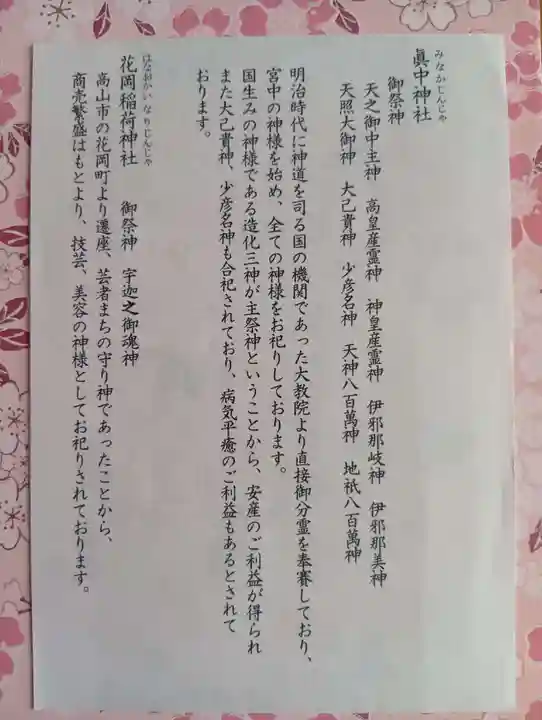 みなかじんじゃ
眞中神社
御祭神
天之御中主神 高皇産霊神 神皇産霊神 伊邪那岐神 伊邪那美神
天照大御神 大己貴神 少彦名神 天神八百萬神 地祇八百萬神
明治時代に神道を司る国の機関であった大教院より直接御分霊を奉賽しており、
宮中の神様を始め、全ての神様をお祀りしております。
国生みの神様である造化三神が主祭神ということから、安産のご利益が得られ
また大己貴神、少彦名神も合祀されており、病気平癒のご利益もあるとされて
おります。
はなおかいなりじんじゃ
花岡稲荷神社 御祭神 宇迦之御魂神
高山市の花岡町より遷座、芸者まちの守り神であったことから、
商売繁盛はもとより、技芸、美容の神様としてお祀りされております。